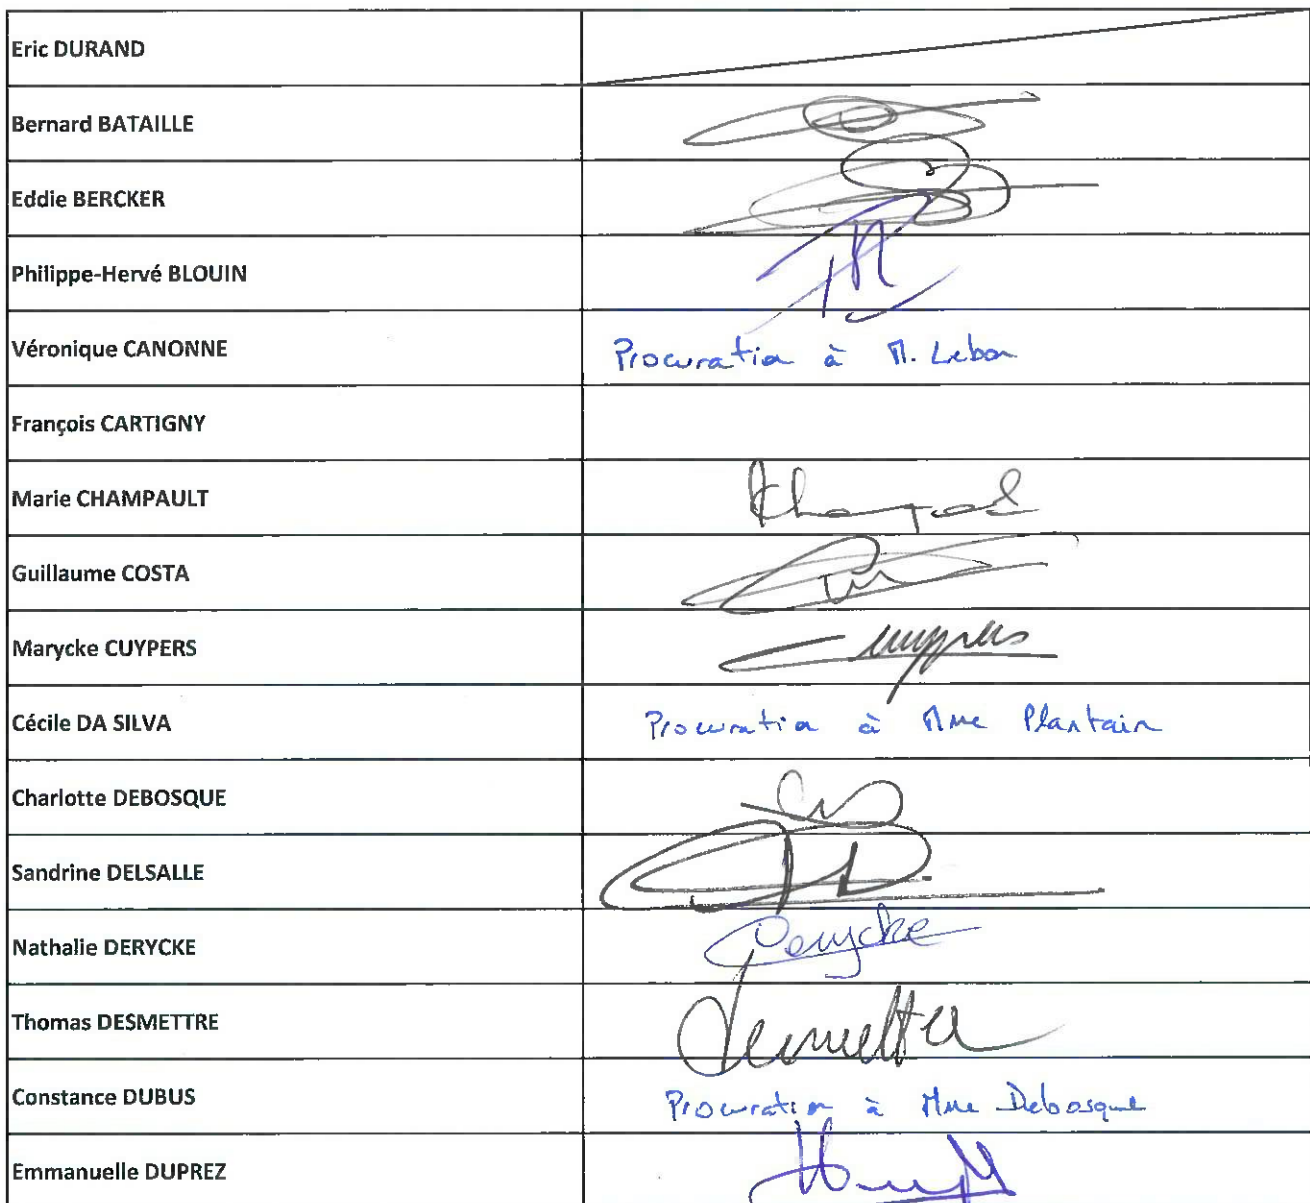 Eric DURAND
Bernard BATAILLE
Eddie BERCKER
Philippe-Hervé BLOUIN
Véronique CANONNE Procuration à M. Lebon
François CARTIGNY
Marie CHAMPAULT
Guillaume COSTA
Marycke CUYPERS Cuypers
Cécile DA SILVA Procuration à Mme Plantain
Charlotte DEBOSQUE
Sandrine DELSALLE
Nathalie DERYCKE Derycke
Thomas DESMETTRE
Constance DUBUS Procuration à Mme Debosque
Emmanuelle DUPREZ